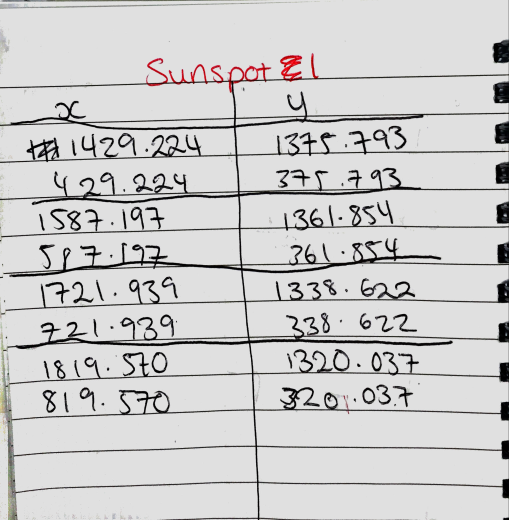 Sunspot 1
x y
1429.224 1375.793
429.224 375.793
1587.197 1361.854
587.197 361.854
1721.939 1338.622
721.939 338.622
1819.570 1320.037
819.570 320.037